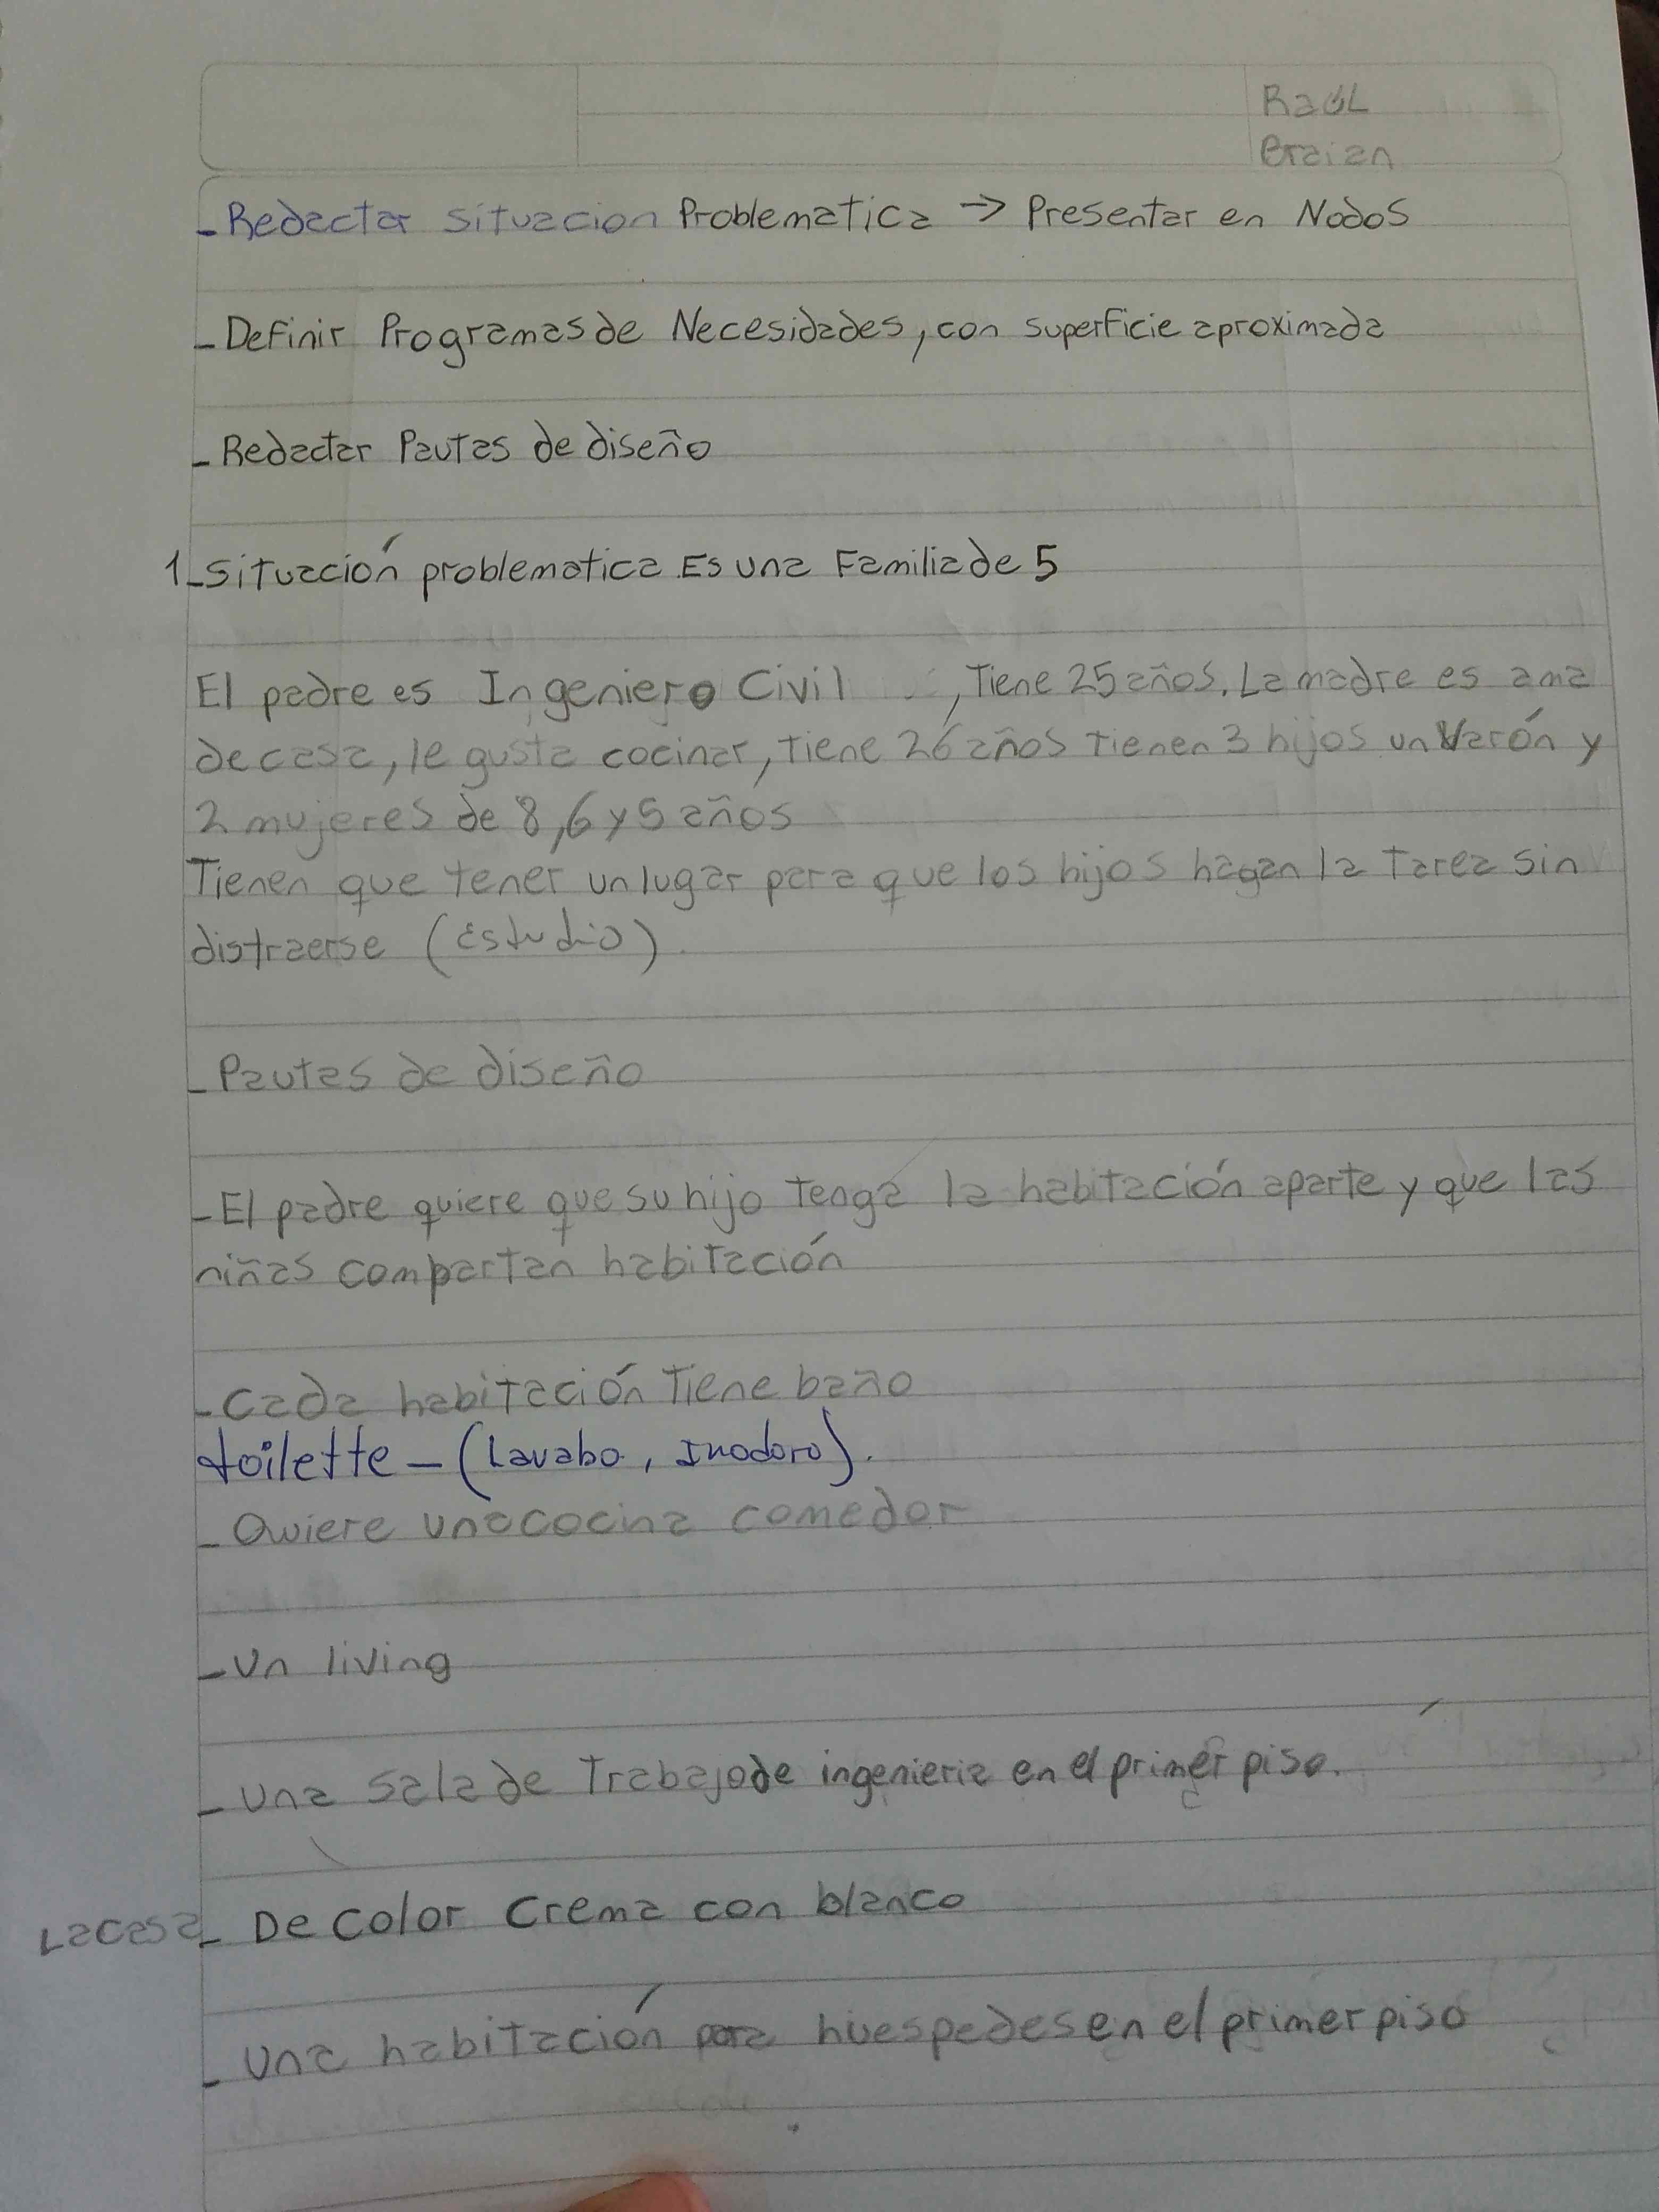 Raúl
Braian
- Redactar situacion Problematica → Presentar en Nodos
- Definir Programas de Necesidades, con superficie aproximada
- Redactar Pautas de diseño
1_ situación problematica Es una Familia de 5
El padre es Ingeniero Civil , Tiene 25 años. La madre es ama
de casa, le gusta cocinar, tiene 26 años tienen 3 hijos un Varón y
2 mujeres de 8, 6 y 5 años
Tienen que tener un lugar para que los hijos hagan la tarea sin
distraerse (Estudio).
- Pautas de diseño
- El padre quiere que su hijo tenga la habitación aparte y que las
niñas compartan habitación
- Cada habitación tiene baño
toilette - (Lavabo, Inodoro).
- Quiere una cocina comedor
- Un living
- Una sala de Trabajo de ingenieria en el primer piso.
La casa - De color crema con blanco
- Una habitación para huespedes en el primer piso